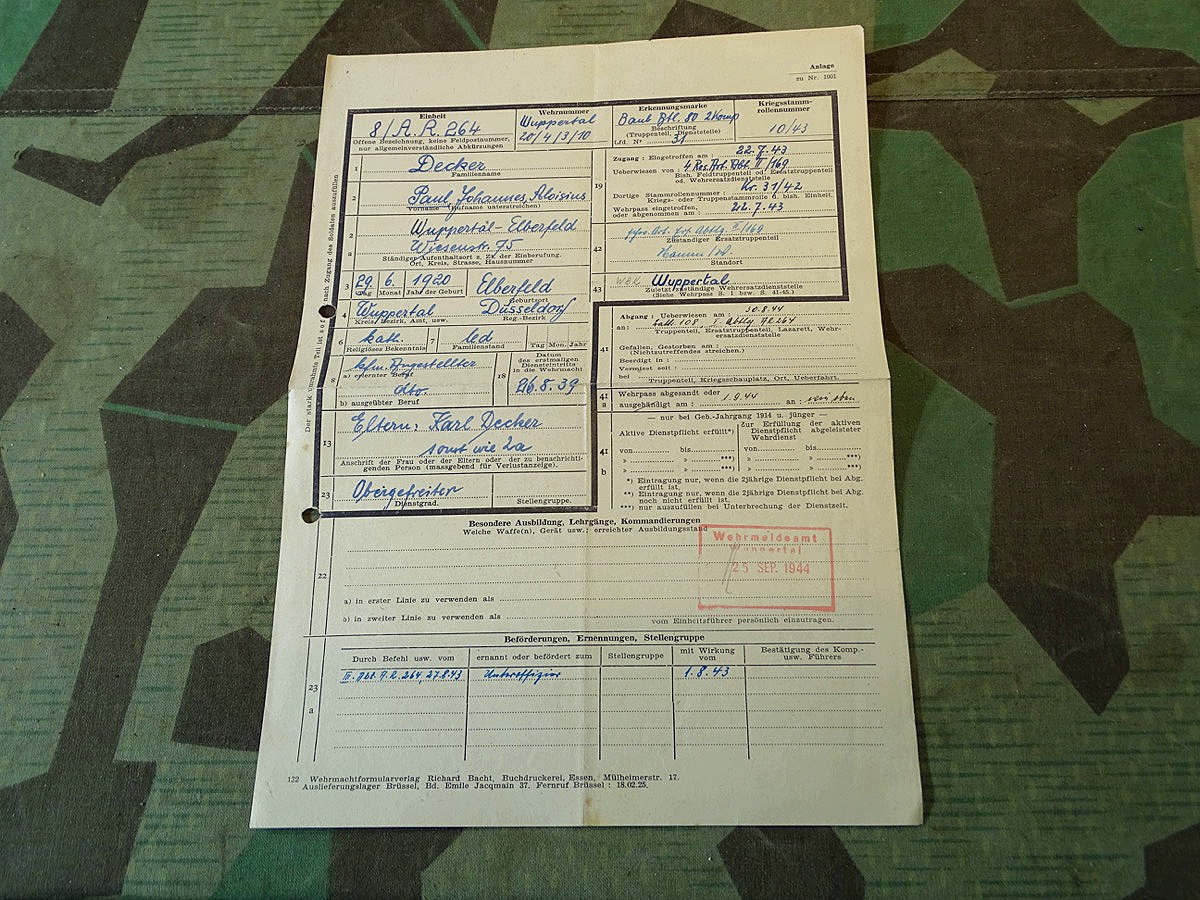 Anlage
zu Nr. 1001
Einheit
8/A.R. 264
Offene Bezeichnung, keine Feldpostnummer,
nur allgemeinverständliche Abkürzungen
Wehrnummer
Wuppertal
20/4/3/10
Erkennungsmarke
Baub Btl. 80 2Komp
Beschriftung
(Truppenteil, Dienststelle)
Lfd. Nº 31
Kriegsstamm-
rollennummer
10/43
Der stark umrahmte Teil ist sofort nach Zugang des Soldaten auszufüllen
1
Decker
Familienname
2
Paul, Johannes, Aloisius
Vorname (Rufname unterstreichen)
2
a
Wuppertal-Elberfeld
Wiesenstr. 75
Ständiger Aufenthaltsort z. Zt. der Einberufung.
Ort, Kreis, Strasse, Hausnummer
3
29. 6. 1920 Elberfeld
Tag Monat Jahr der Geburt Geburtsort
4
Wuppertal Düsseldorf
Kreis, Bezirk, Amt, usw. Reg.-Bezirk
6 kath. 7 led
Religiöses Bekenntnis Familienstand Tag Mon. Jahr
kfm. Angestellter
a) erlernter Beruf
dto.
b) ausgeübter Beruf
18
Datum
des erstmaligen
Diensteintritts
in die Wehrmacht
26.8.39
13
Eltern: Karl Decker
sonst wie 2a
Anschrift der Frau oder der Eltern oder der zu benachrichti-
genden Person (massgebend für Verlustanzeige).
23
Obergefreiter
Dienstgrad. Stellengruppe.
19
Zugang : Eingetroffen am : 22.7.43
Ueberwiesen von : 4 Res. Art. Abt. II/169
Bish. Feldtruppenteil od. Ersatztruppenteil
od. Wehrersatzdienststelle
Dortige Stammrollennummer : Nr. 31/42
Kriegs- oder Truppenstammrolle d. bish. Einheit.
Wehrpass eingetroffen,
oder abgenommen am : 22.7.43
42
II/169
Zuständiger Ersatztruppenteil
Hamm
Standort
43
WBK Wuppertal
Zuletzt zuständige Wehrersatzdienststelle
(Siehe Wehrpass S. 1 bzw. S. 41-45.)
41
Abgang : Ueberwiesen am : 30.8.44
an : 108, I. Abtlg AR 264
Truppenteil, Ersatztruppenteil, Lazarett, Wehr-
ersatzdienststelle
Gefallen, Gestorben am :
(Nichtzutreffendes streichen.)
Beerdigt in :
Vermisst seit :
bei
Truppenteil, Kriegsschauplatz, Ort, Ueberfahrt.
41
a
Wehrpass abgesandt oder
ausgehändigt am : 1.9.44 an : wie oben
— nur bei Geb.-Jahrgang 1914 u. jünger —
41
b
Aktive Dienstpflicht erfüllt*)
von bis
» » ***)
» » ***)
Zur Erfüllung der aktiven
Dienstpflicht abgeleisteter
Wehrdienst
von bis
» » ***)
» » ***)
*) Eintragung nur, wenn die 2jährige Dienstpflicht bei Abg.
erfüllt ist.
**) Eintragung nur, wenn die 2jährige Dienstpflicht bei Abg.
noch nicht erfüllt ist.
***) nur auszufüllen bei Unterbrechung der Dienstzeit.
Besondere Ausbildung, Lehrgänge, Kommandierungen
Welche Waffe(n), Gerät usw.; erreichter Ausbildungsstand
Wehrmeldeamt
Wuppertal
25 SEP. 1944
22
a) in erster Linie zu verwenden als
b) in zweiter Linie zu verwenden als
vom Einheitsführer persönlich einzutragen.
Beförderungen, Ernennungen, Stellengruppe
Durch Befehl usw. vom
ernannt oder befördert zum
Stellengruppe
mit Wirkung
vom
Bestätigung des Komp.-
usw. Führers
23
a
III. Abt. A.R. 264, 27.8.43 Unteroffizier 1.8.43
132 Wehrmachtformularverlag Richard Bacht, Buchdruckerei, Essen, Mülheimerstr. 17.
Auslieferungslager Brüssel, Bd. Emile Jacqmain 37. Fernruf Brüssel : 18.02.25.